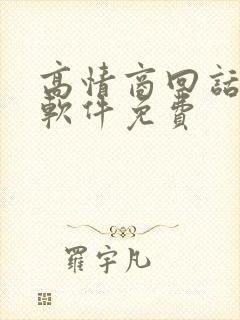 高情商回話
軟件免費
羅宇凡